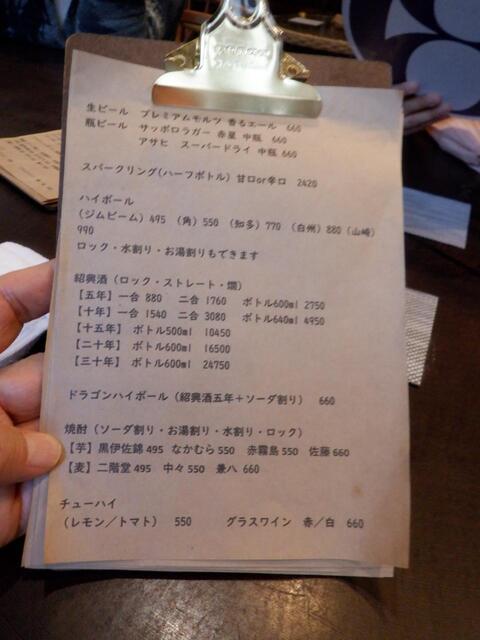 生ビール　プレミアムモルツ 香るエール　660
瓶ビール　サッポロラガー 赤星 中瓶　660
アサヒ　スーパードライ 中瓶 660
スパークリング(ハーフボトル) 甘口or辛口　2420
ハイボール
(ジムビーム) 495 （角) 550 （知多) 770 （白州) 880（山崎)
990
ロック・水割り・お湯割りもできます
紹興酒（ロック・ストレート・燗）
【五年】一合 880　二合 1760　ボトル600ml 2750
【十年】一合 1540　二合 3080　ボトル640ml 4950
【十五年】 ボトル500ml　10450
【二十年】 ボトル600ml　16500
【三十年】 ボトル600ml　24750
ドラゴンハイボール（紹興酒五年＋ソーダ割り）　660
焼酎（ソーダ割り・お湯割り・水割り・ロック）
【芋】黒伊佐錦 495　なかむら 550　赤霧島 550　佐藤 660
【麦】二階堂 495　中々 550　兼八 660
チューハイ
（レモン／トマト）　550　　グラスワイン　赤／白　660